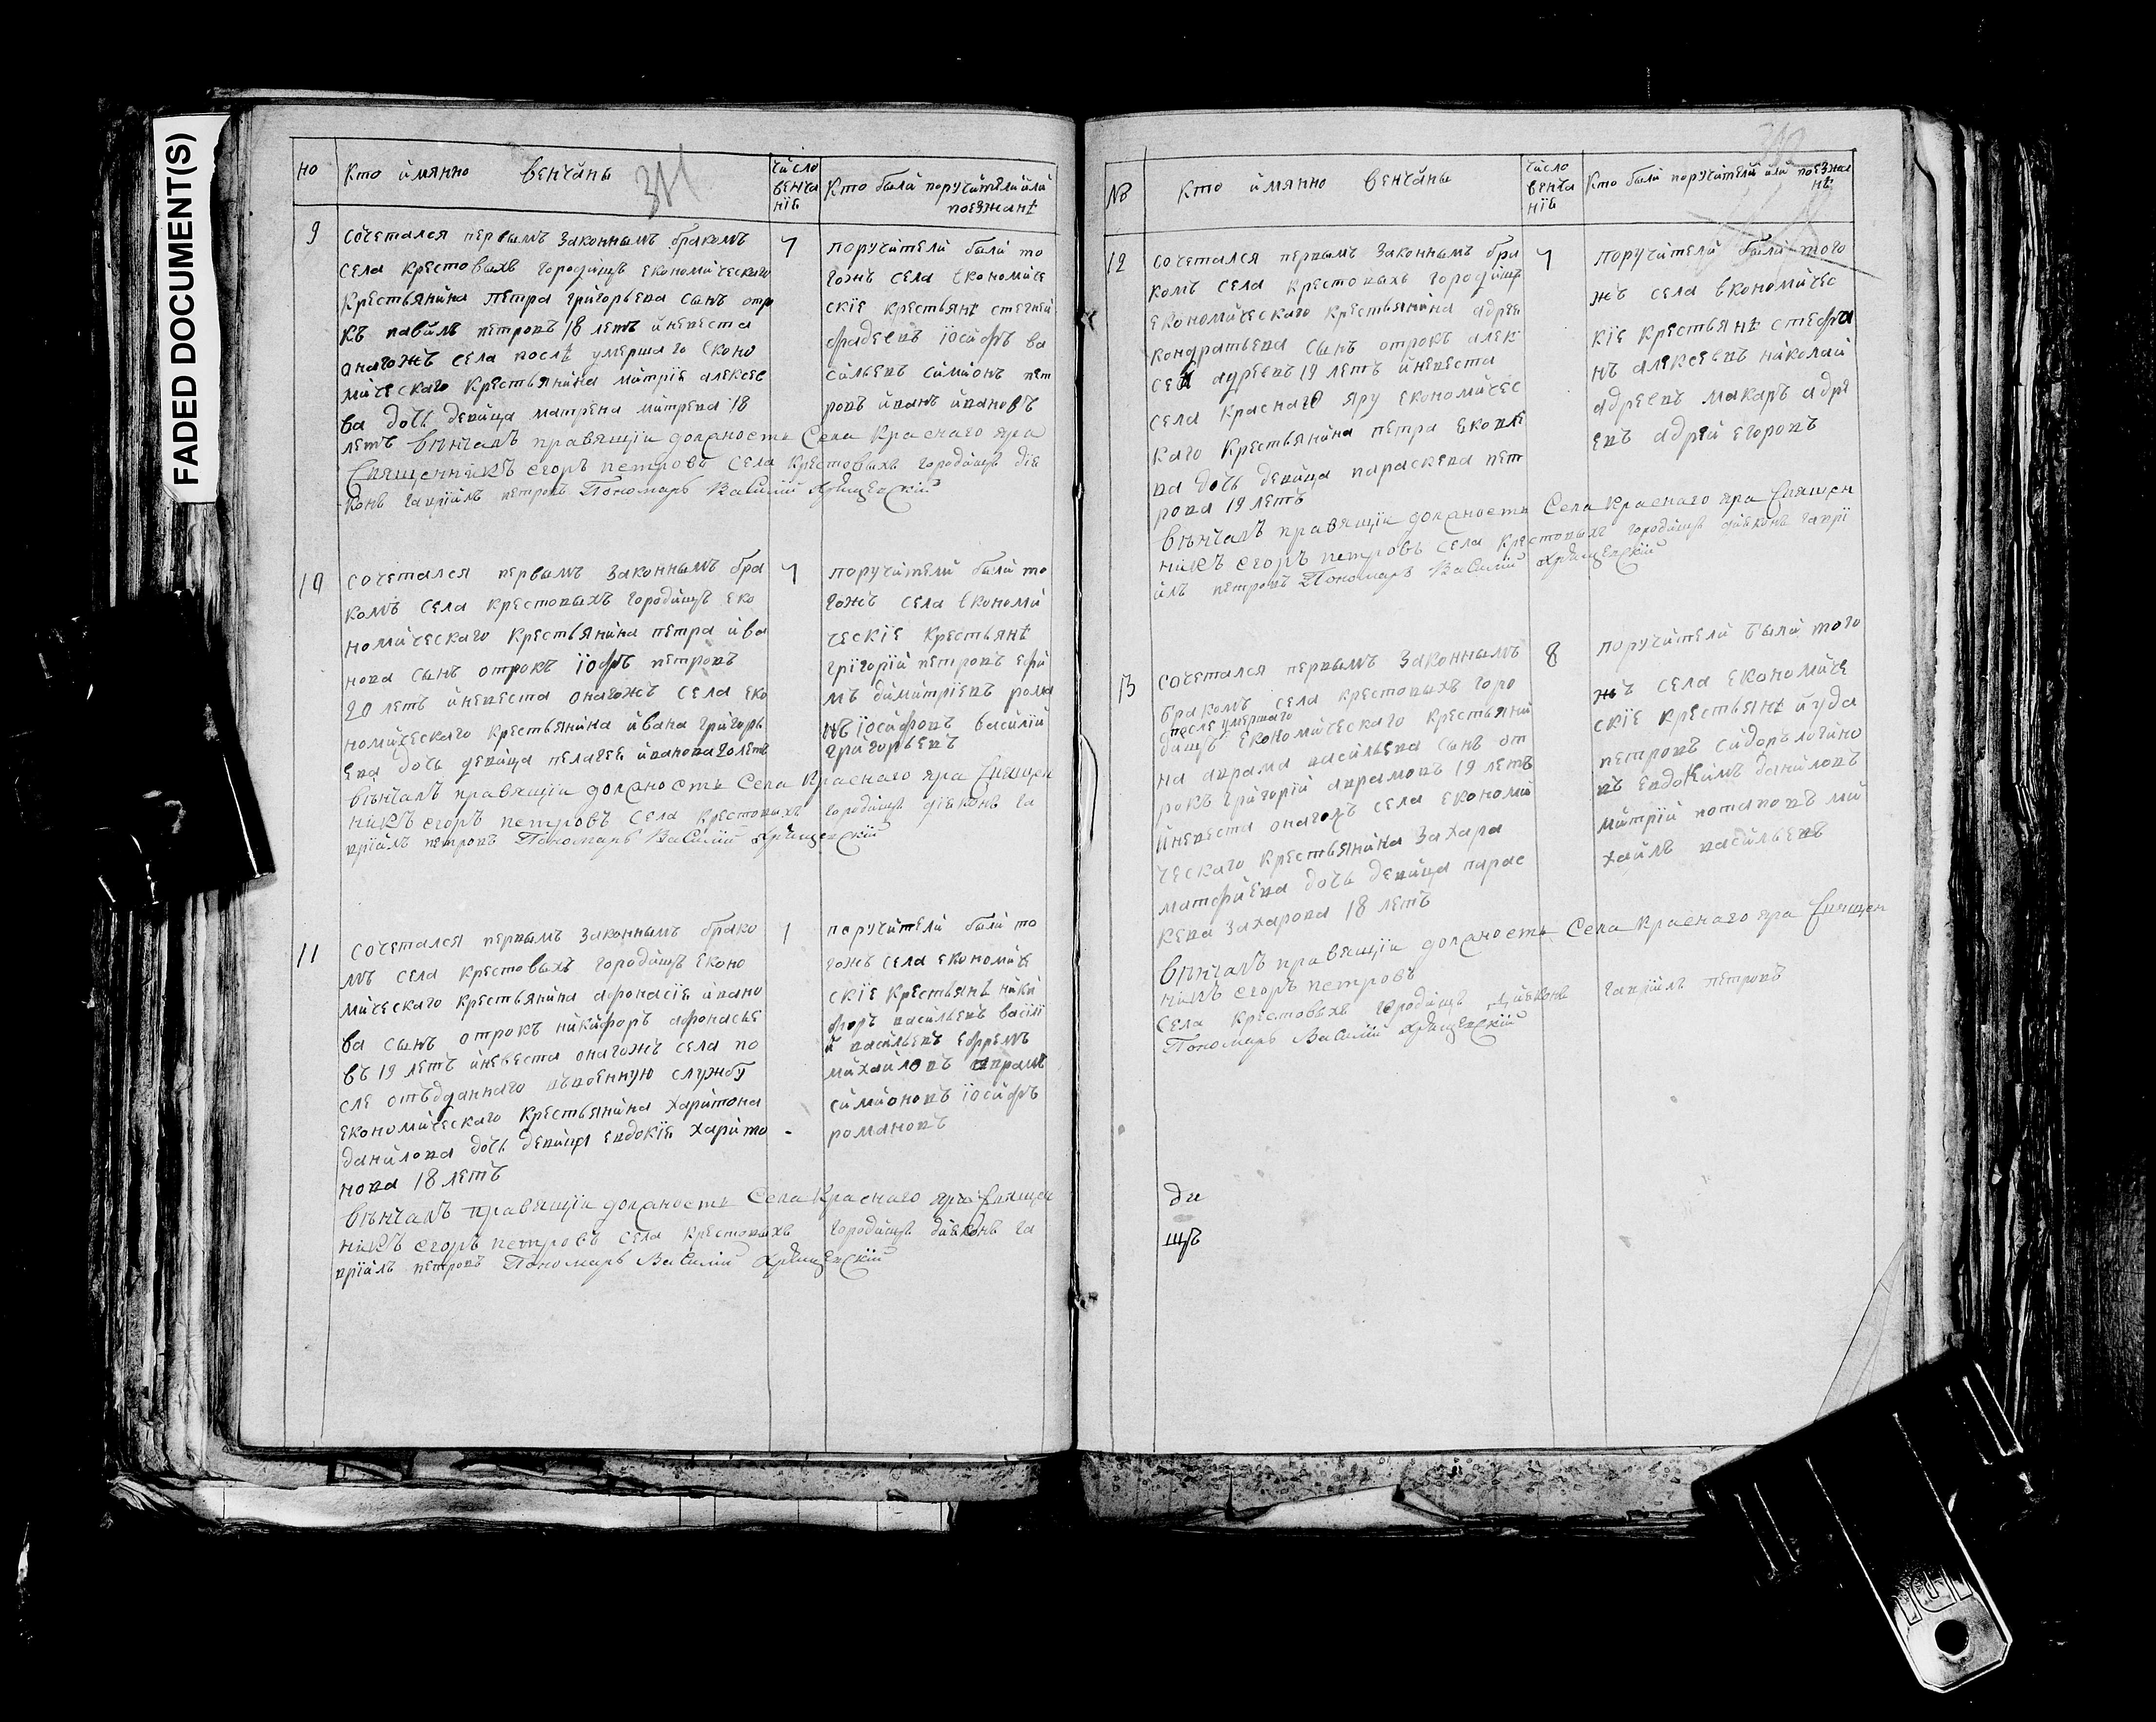 FADED DOCUMENT(S)
но
Кто имянно венчаны
311
число венча нїе
Кто были поручители или поезжанѣ
9
сочетался первымъ законнымъ бракомъ
села крестовыхъ городищъ економическаго
крестьянина петра григорьева сынъ отро
къ павилъ петровъ 18 летъ иневеста
онагожъ села послѣ умершаго еконо
мическаго крестьянина митрїе алексее
ва дочь девица матрена митрева 18
летъ венчалъ правящїи должность Села Краснаго яра
Священникъ егоръ петровъ села крестовыхъ городищъ дїе
конъ гаврїилъ петровъ Пономарь Василїй
7
поручители были то
гожъ села економиче
скїе крестьянѣ
фадеевъ їосифъ ва
сильевъ симионъ пет
ровъ иванъ ивановъ
10
сочетался первымъ законнымъ бра
комъ села крестовыхъ городищъ еко
номическаго крестьянина петра ива
нова сынъ отрокъ їофъ петровъ
20 летъ иневеста онагожъ села еко
номическаго крестьянина ивана григорь
ева дочь девица пелагее иванова 20 летъ
венчалъ правящїи должность Села Краснаго яра Священ
никъ егоръ петровъ села крестовыхъ городищъ дїеконъ га
врїилъ петровъ Пономарь Василїй
7
поручители были то
гожъ села економи
ческїе крестьянѣ
григорїй петровъ ефи
мъ димитрїевъ рома
нъ їосифовъ василїй
григорьевъ
11
сочетался первымъ законнымъ брако
мъ села крестовыхъ городищъ еконо
мическаго крестьянина афонасїе ивано
ва сынъ отрокъ никифоръ афонасье
въ 19 летъ иневеста онагожъ села по
сле отъдданнаго въвоенную службу
економическаго крестьянина харитона
данилова дочь девица евдокїе харито
нова 18 летъ
венчалъ правящїи должность Села Краснаго яра Священ
никъ егоръ петровъ села крестовыхъ городищъ дияконъ га
врїилъ петровъ Пономарь Василїй
поручители были то
гожъ села економиче
скїе крестьянѣ ники
форъ васильевъ васїлї
й васильевъ ефремъ
михайловъ аврамъ
симионовъ їосифъ
романовъ
312
№
Кто имянно венчаны
число венча нїе
Кто были поручители или поезжа нѣ
12
сочетался первымъ законнымъ бра
комъ села крестовыхъ городищъ
економическаго крестьянина адрее
кондратьева сынъ отрокъ алек
сей адреевъ 19 летъ иневеста
села краснаго яру економичес
каго крестьянина петра
ва дочь девица параскева пет
рова 19 летъ
венчалъ правящїи должность Села Краснаго яра Священ
никъ егоръ петровъ села крестовыхъ городищъ дияконъ гаврї
илъ петровъ Пономарь Василїй
7
поручители были того
жъ села економичес
кїе крестьянѣ стефа
нъ алексеевъ николай
адреевъ макаръ адре
евъ адрей егоровъ
13
сочетался первымъ законнымъ
бракомъ села крестовыхъ горо
после умершаго
дищъ економическаго крестьяни
на аврама васильева сынъ от
рокъ григорїй аврамовъ 19 летъ
иневеста онагожъ села економи
ческаго крестьянина захара
матфиева дочь девица парас
кева захарова 18 летъ
венчалъ правящїи должность Села Краснаго яра Священ
никъ егоръ петровъ
Села крестовыхъ городищъ дияконъ гаврїилъ петровъ
Пономарь Василїй
8
поручители были того
жъ села економиче
скїе крестьянѣ иуда
петровъ сидоръ логино
въ евдокимъ даниловъ
митрїй потаповъ ми
хайлъ васильевъ
ди
щъ